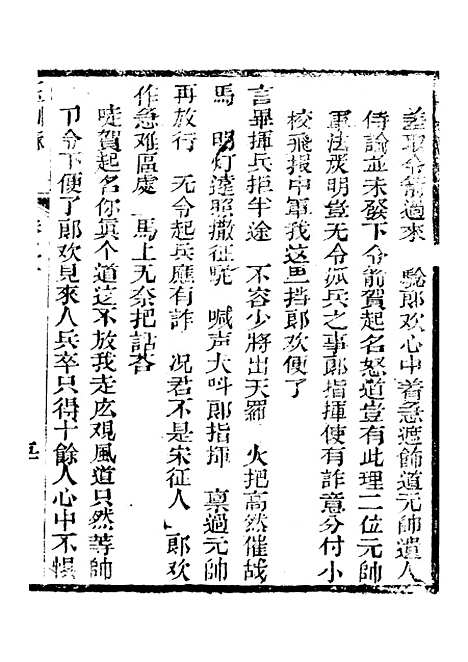 差取令箭過來　駘郎欢心中着急遮飾道元帥遣人
侍諭並未發下令箭賀起名怒道豈有此理二位元帥
軍法嚴明豈无令孤兵之事郎指揮使有詐意分付小
校飛报中軍我这里挡郎欢便了
言畢揮兵拒半途　不容少將出天羅　火把高然催战
馬　明灯遠照撒征駝　喊声大叫郎指揮　禀過元帥
再放行　无令起兵應有詐　况君不是宋征人　郎欢
作急难區處　馬上无奈把話答
哇賀起名你真个道这不放我走庅覌風道只然等帥
卩令下便了郎欢見來人兵卒只得十餘人心中不惧